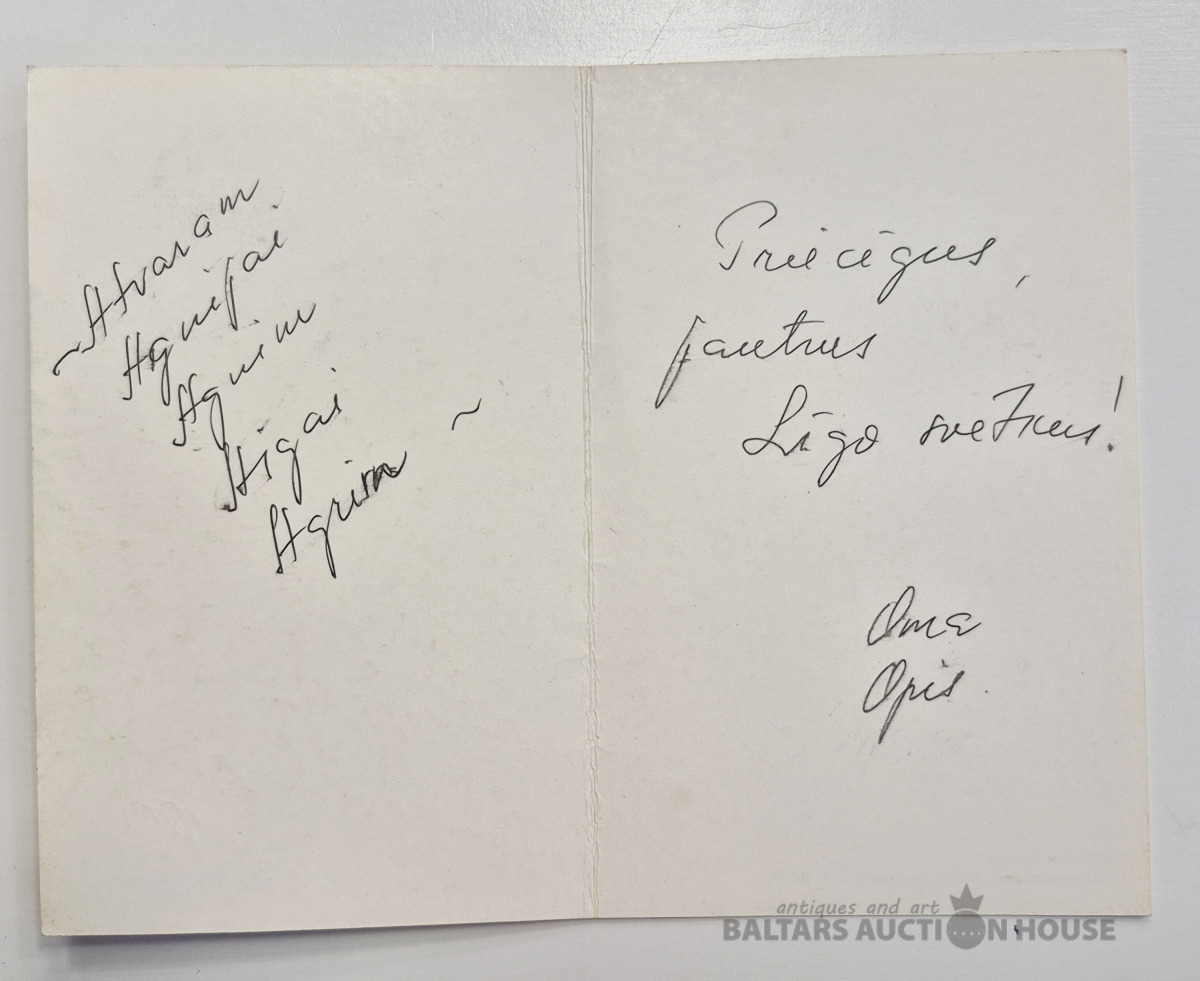 ~ Aivaram
Agnijai
Agnim
Aigai
Agrim ~
Priecīgus,
jautrus
Līgo svētkus!
Oma
Opis.
antiques and art
BALTARS AUCTION HOUSE